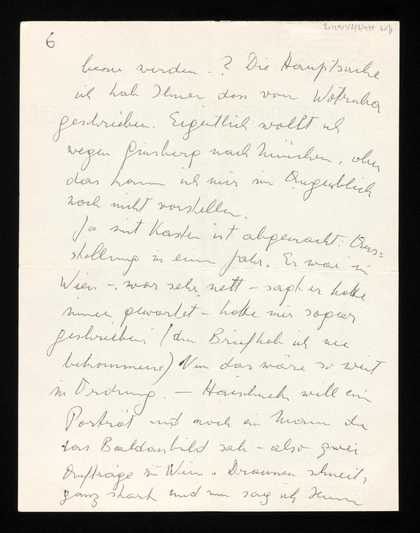 6
besser werden.? Die Hauptsache
ich hab Ihnen das von Wotruba
geschrieben. Eigentlich wollt ich
wegen Ginsberg nach München, aber
das kann ich mir im Augenblick
noch nicht vorstellen.
Ja mit Kasten ist abgemacht: Aus=
stellung in einem Jahr. Er war in
Wien -, war sehr nett - sagt er hätte
immer gewartet - hätte mir sogar
geschrieben (den Brief hab ich nie
bekommen) Nun das wäre so weit
in Ordnung. - will ein
Porträt und noch ein Mann der
das sah - also zwei
Aufträge in Wien. Draussen schneit,
ganz stark und nun sag ich Ihnen